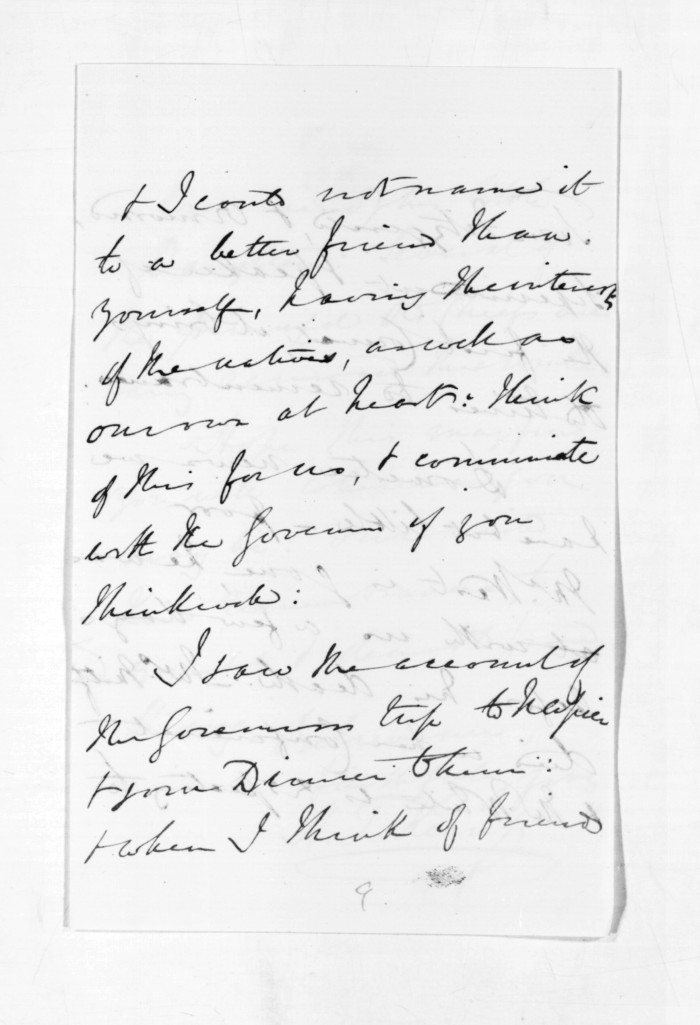 & I could not name it
to a better friend than
yourself, having the interests
of the natives, as well as
our own at heart: think
of this for us, & communicate
with the Governor if you
think well:
I saw the account of
the Governors trip to Napier
& your Dinner to him:
& when I think of friends
9